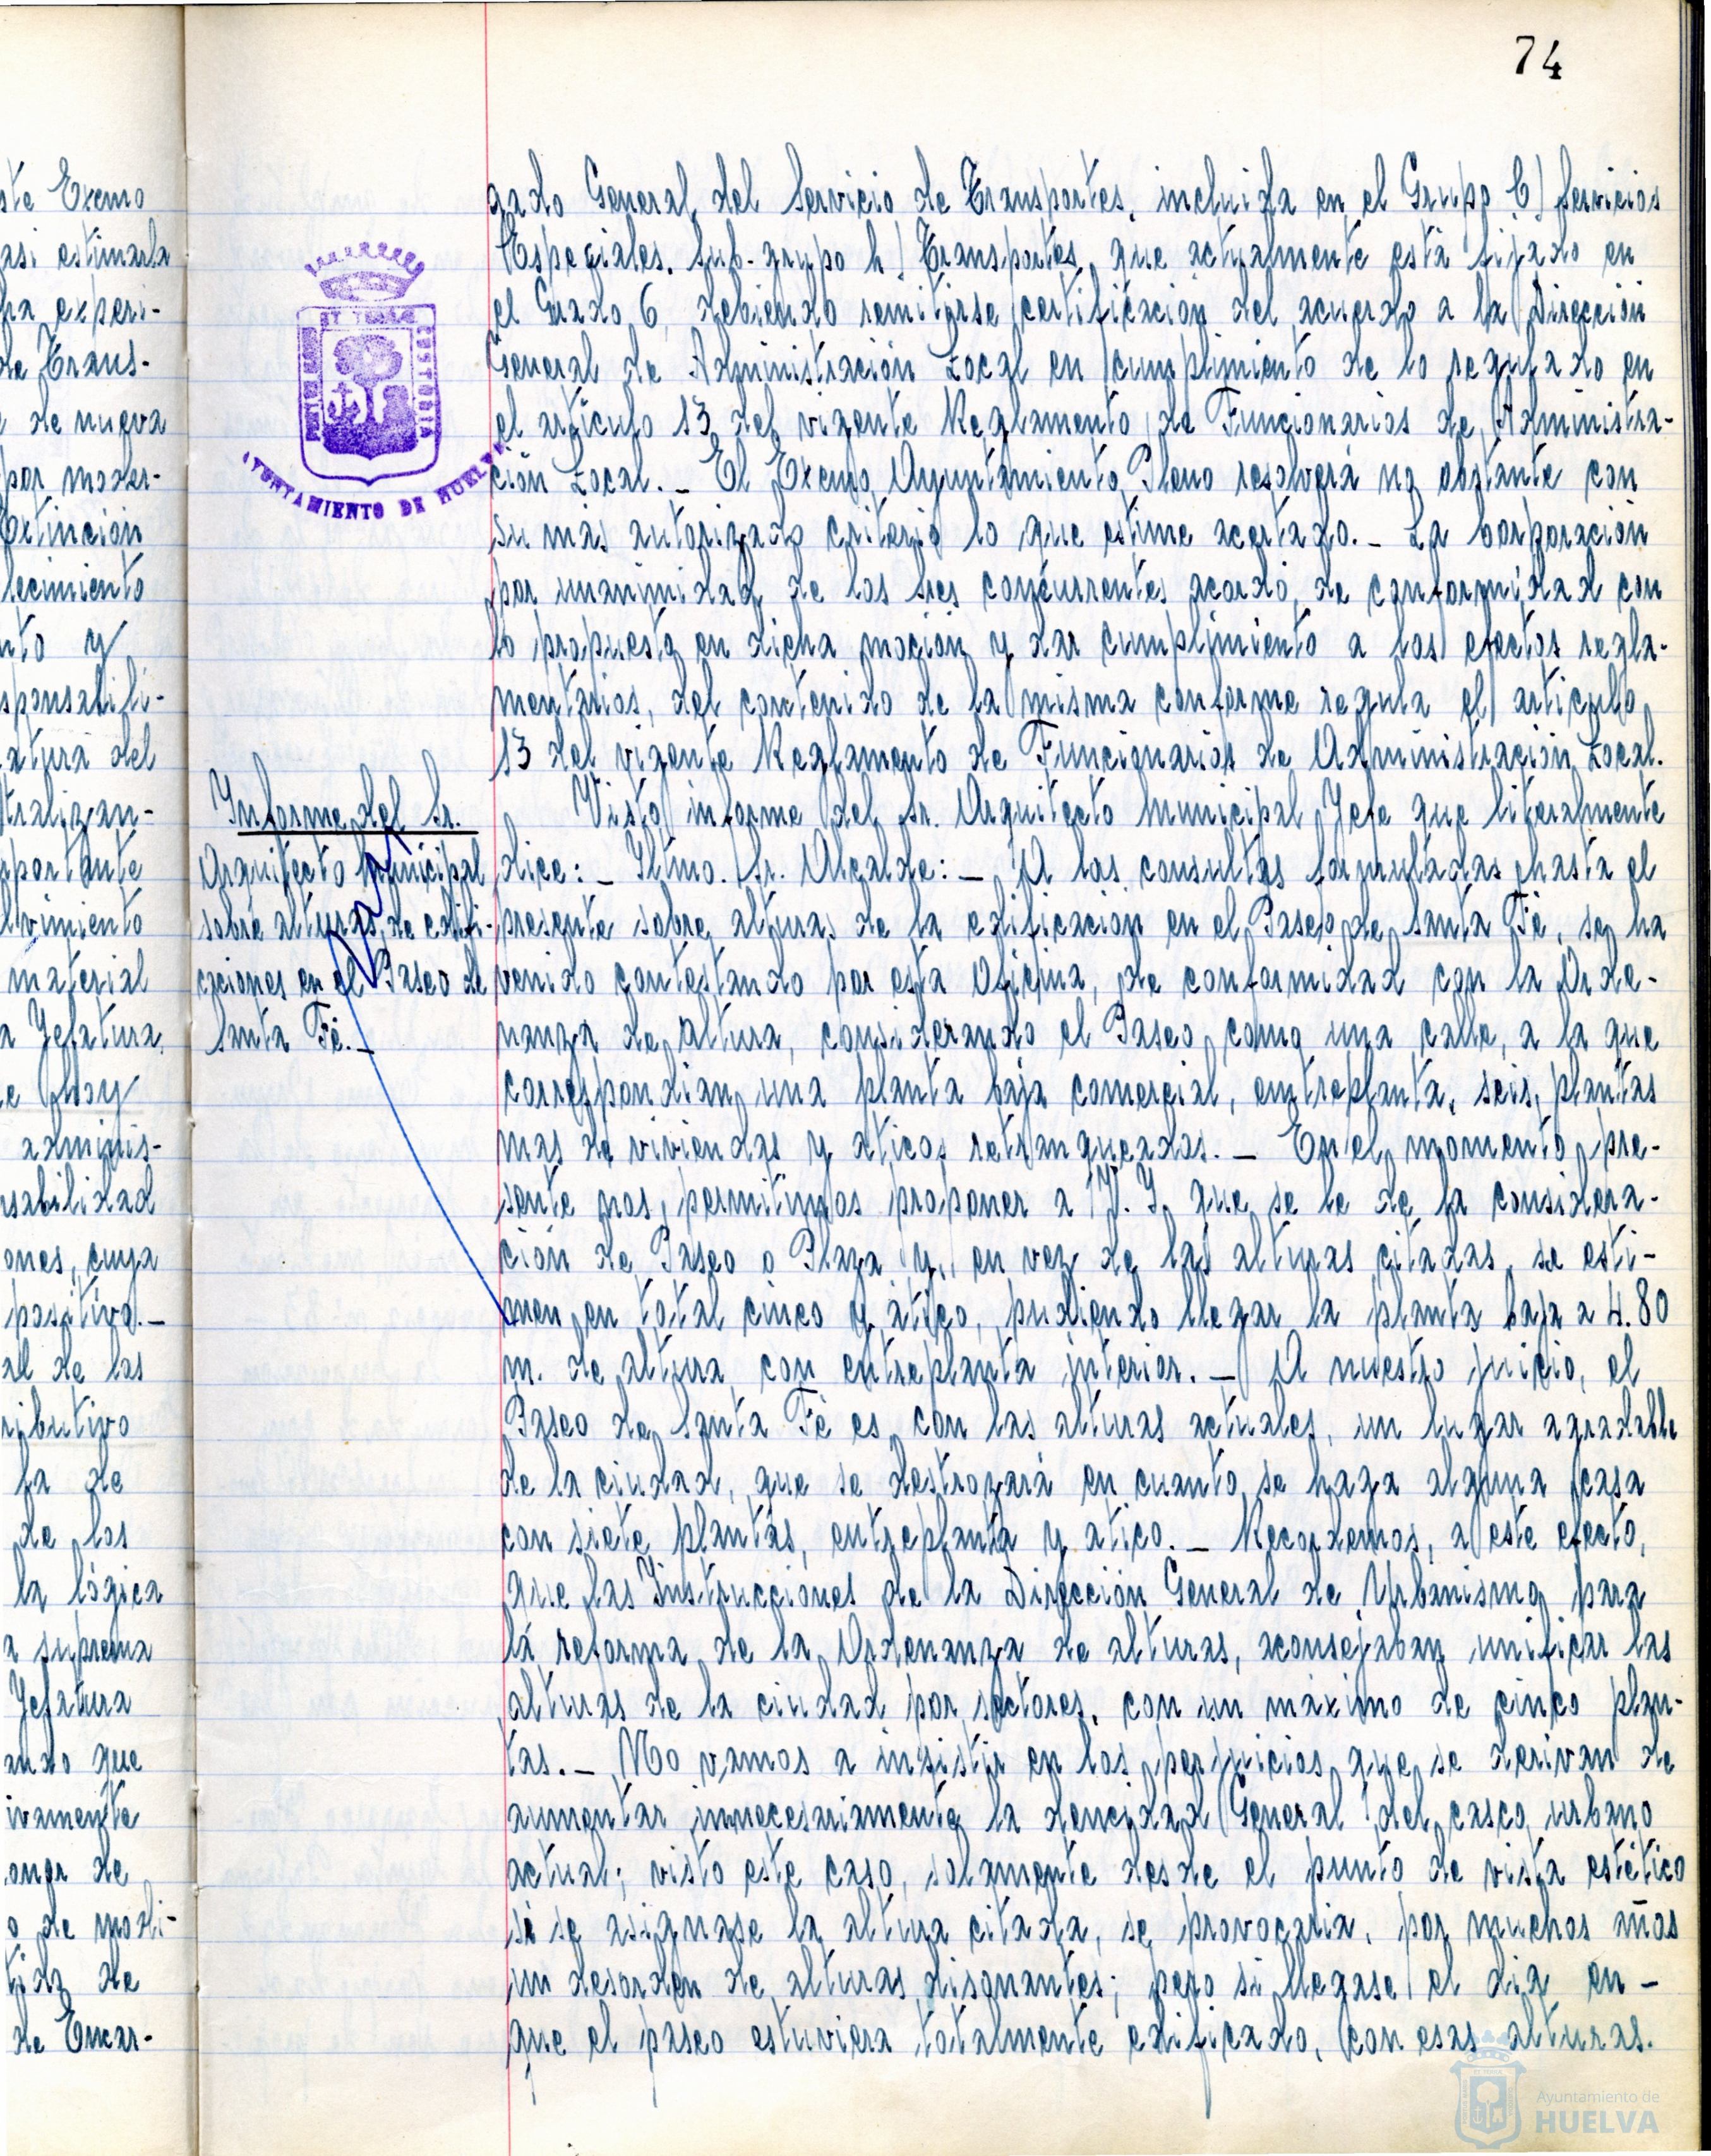 74
ste Excmo
asi estimarla
ha experi-
de Trans-
e de nueva
por moder-
Extincion
lecimiento
nto y
sponsabili-
atura del
tralizan-
portante
lvimiento
material
a Jefatura,
e hoy
adminis-
nsabilidad
ones, cuya
positivo.-
al de las
ributivo
la de
de los
la lógica
a suprema
Jefatura
ando que
ivamente
onga de
o de modi-
tida de
de Encar-
AYUNTAMIENTO DE HUELVA
Informe del Sr.
Arquitecto Municipal
sobre alturas de edifi-
caciones en el Paseo de
Santa Fé.-
gado General del Servicio de Transportes, incluida en el Grupo C) Servicios
Especiales. Sub-grupo h) Transportes, que actualmente está fijado en
el Grado 6, debiendo remitirse certificación del acuerdo a la Dirección
General de Administración Local en cumplimiento de lo regulado en
el artículo 13 del vigente Reglamento de Funcionarios de Administra-
ción Local.- El Excmo Ayuntamiento Pleno resolverá no obstante con
su más autorizado criterio lo que estime acertado.- La Corporación
por unanimidad de los Sres concurrentes acordó, de conformidad con
lo propuesto en dicha moción y dar cumplimiento a los efectos regla-
mentarios, del contenido de la misma conforme regula el articulo
13 del vigente Reglamento de Funcionarios de Administración Local.
Visto informe del Sr. Arquitecto Municipal Jefe que literalmente
dice:- Iltmo. Sr. Alcalde:- A las consultas formuladas hasta el
presente sobre alturas de la edificación en el Paseo de Santa Fé, se ha
venido contestando por esta Oficina, de conformidad con la Orde-
nanza de altura, considerando el Paseo como una calle, a la que
correspondian una planta baja comercial, entreplanta, seis plantas
mas de viviendas y aticos retranqueados.- En el momento pre-
sente nos permitimos proponer a V. I. que se le de la considera-
ción de Paseo o Plaza y, en vez de las alturas citadas, se esti-
men en total cinco y atico, pudiendo llegar la planta baja a 4.80
m. de altura con entreplanta interior.- A nuestro juicio, el
Paseo de Santa Fé es con las alturas actuales, un lugar agradable
de la ciudad, que se destrozará en cuanto se haga alguna casa
con siete plantas, entreplanta y atico.- Recordemos, a este efecto,
que las Instrucciones de la Dirección General de Urbanismo para
la reforma de la Ordenanza de alturas, aconsejaban unificar las
alturas de la ciudad por sectores, con un máximo de cinco plan-
tas.- No vamos a insistir en los perjuicios que se derivan de
aumentar innecesariamente la dencidad General del casco urbano
actual; visto este caso, solamente desde el punto de vista estético
si se asignase la altura citada, se provocaria, por muchos años
un desorden de alturas disonantes; pero si llegase el dia en -
que el paseo estuviera totalmente edificado, con esas alturas.
Ayuntamiento de
HUELVA